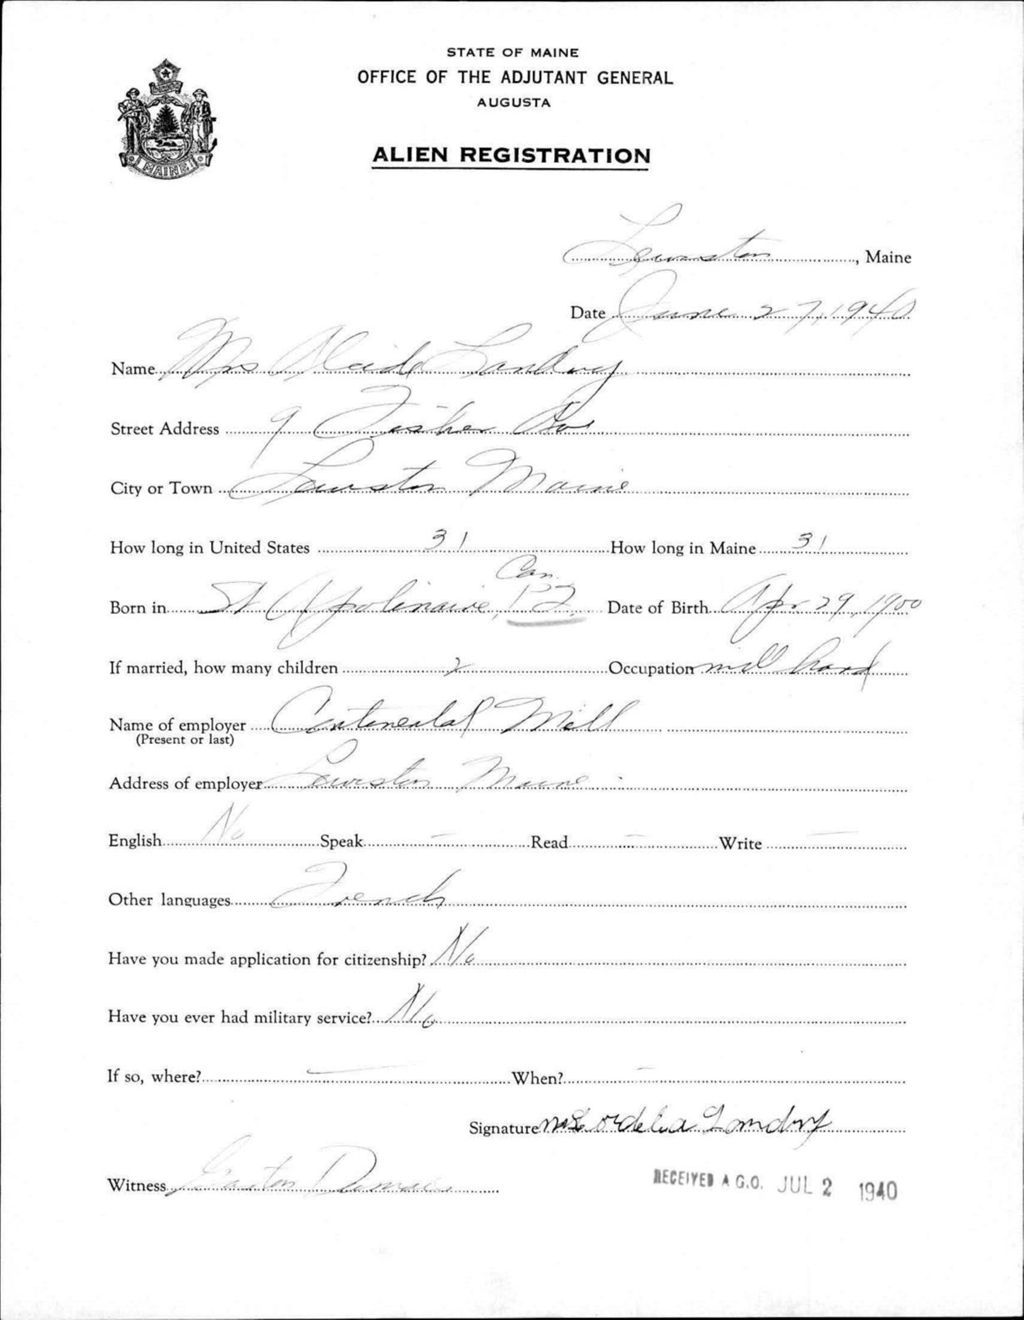 STATE OF MAINE
OFFICE OF THE ADJUTANT GENERAL
AUGUSTA
MAINE
ALIEN REGISTRATION
Lewiston, Maine
Date June 27, 1940
Name Mrs Alcide Landry
Street Address 9 Fisher Ave
City or Town Lewiston Maine
How long in United States 31 How long in Maine 31
Can.
Born in St Apolinaire, P2, Date of Birth Apr. 29, 1900
If married, how many children 2 Occupation mill hand
Name of employer Continental Mill
(Present or last)
Address of employer Lewiston Maine
English No Speak - Read - Write -
Other languages French
Have you made application for citizenship? No
Have you ever had military service? No
If so, where? - When? -
Signature Landry
Witness Gaston
RECEIVED A.G.O. JUL 2 1940